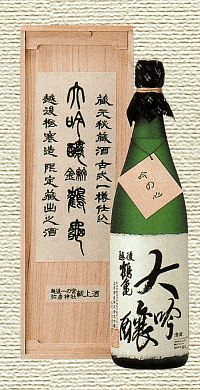 蔵元秘蔵酒古式一樽仕込
大吟醸 鶴亀
越後極寒造 限定蔵出之酒
越後一の宮
弥彦神社献上酒
吟の心
越後
鶴亀
大吟醸